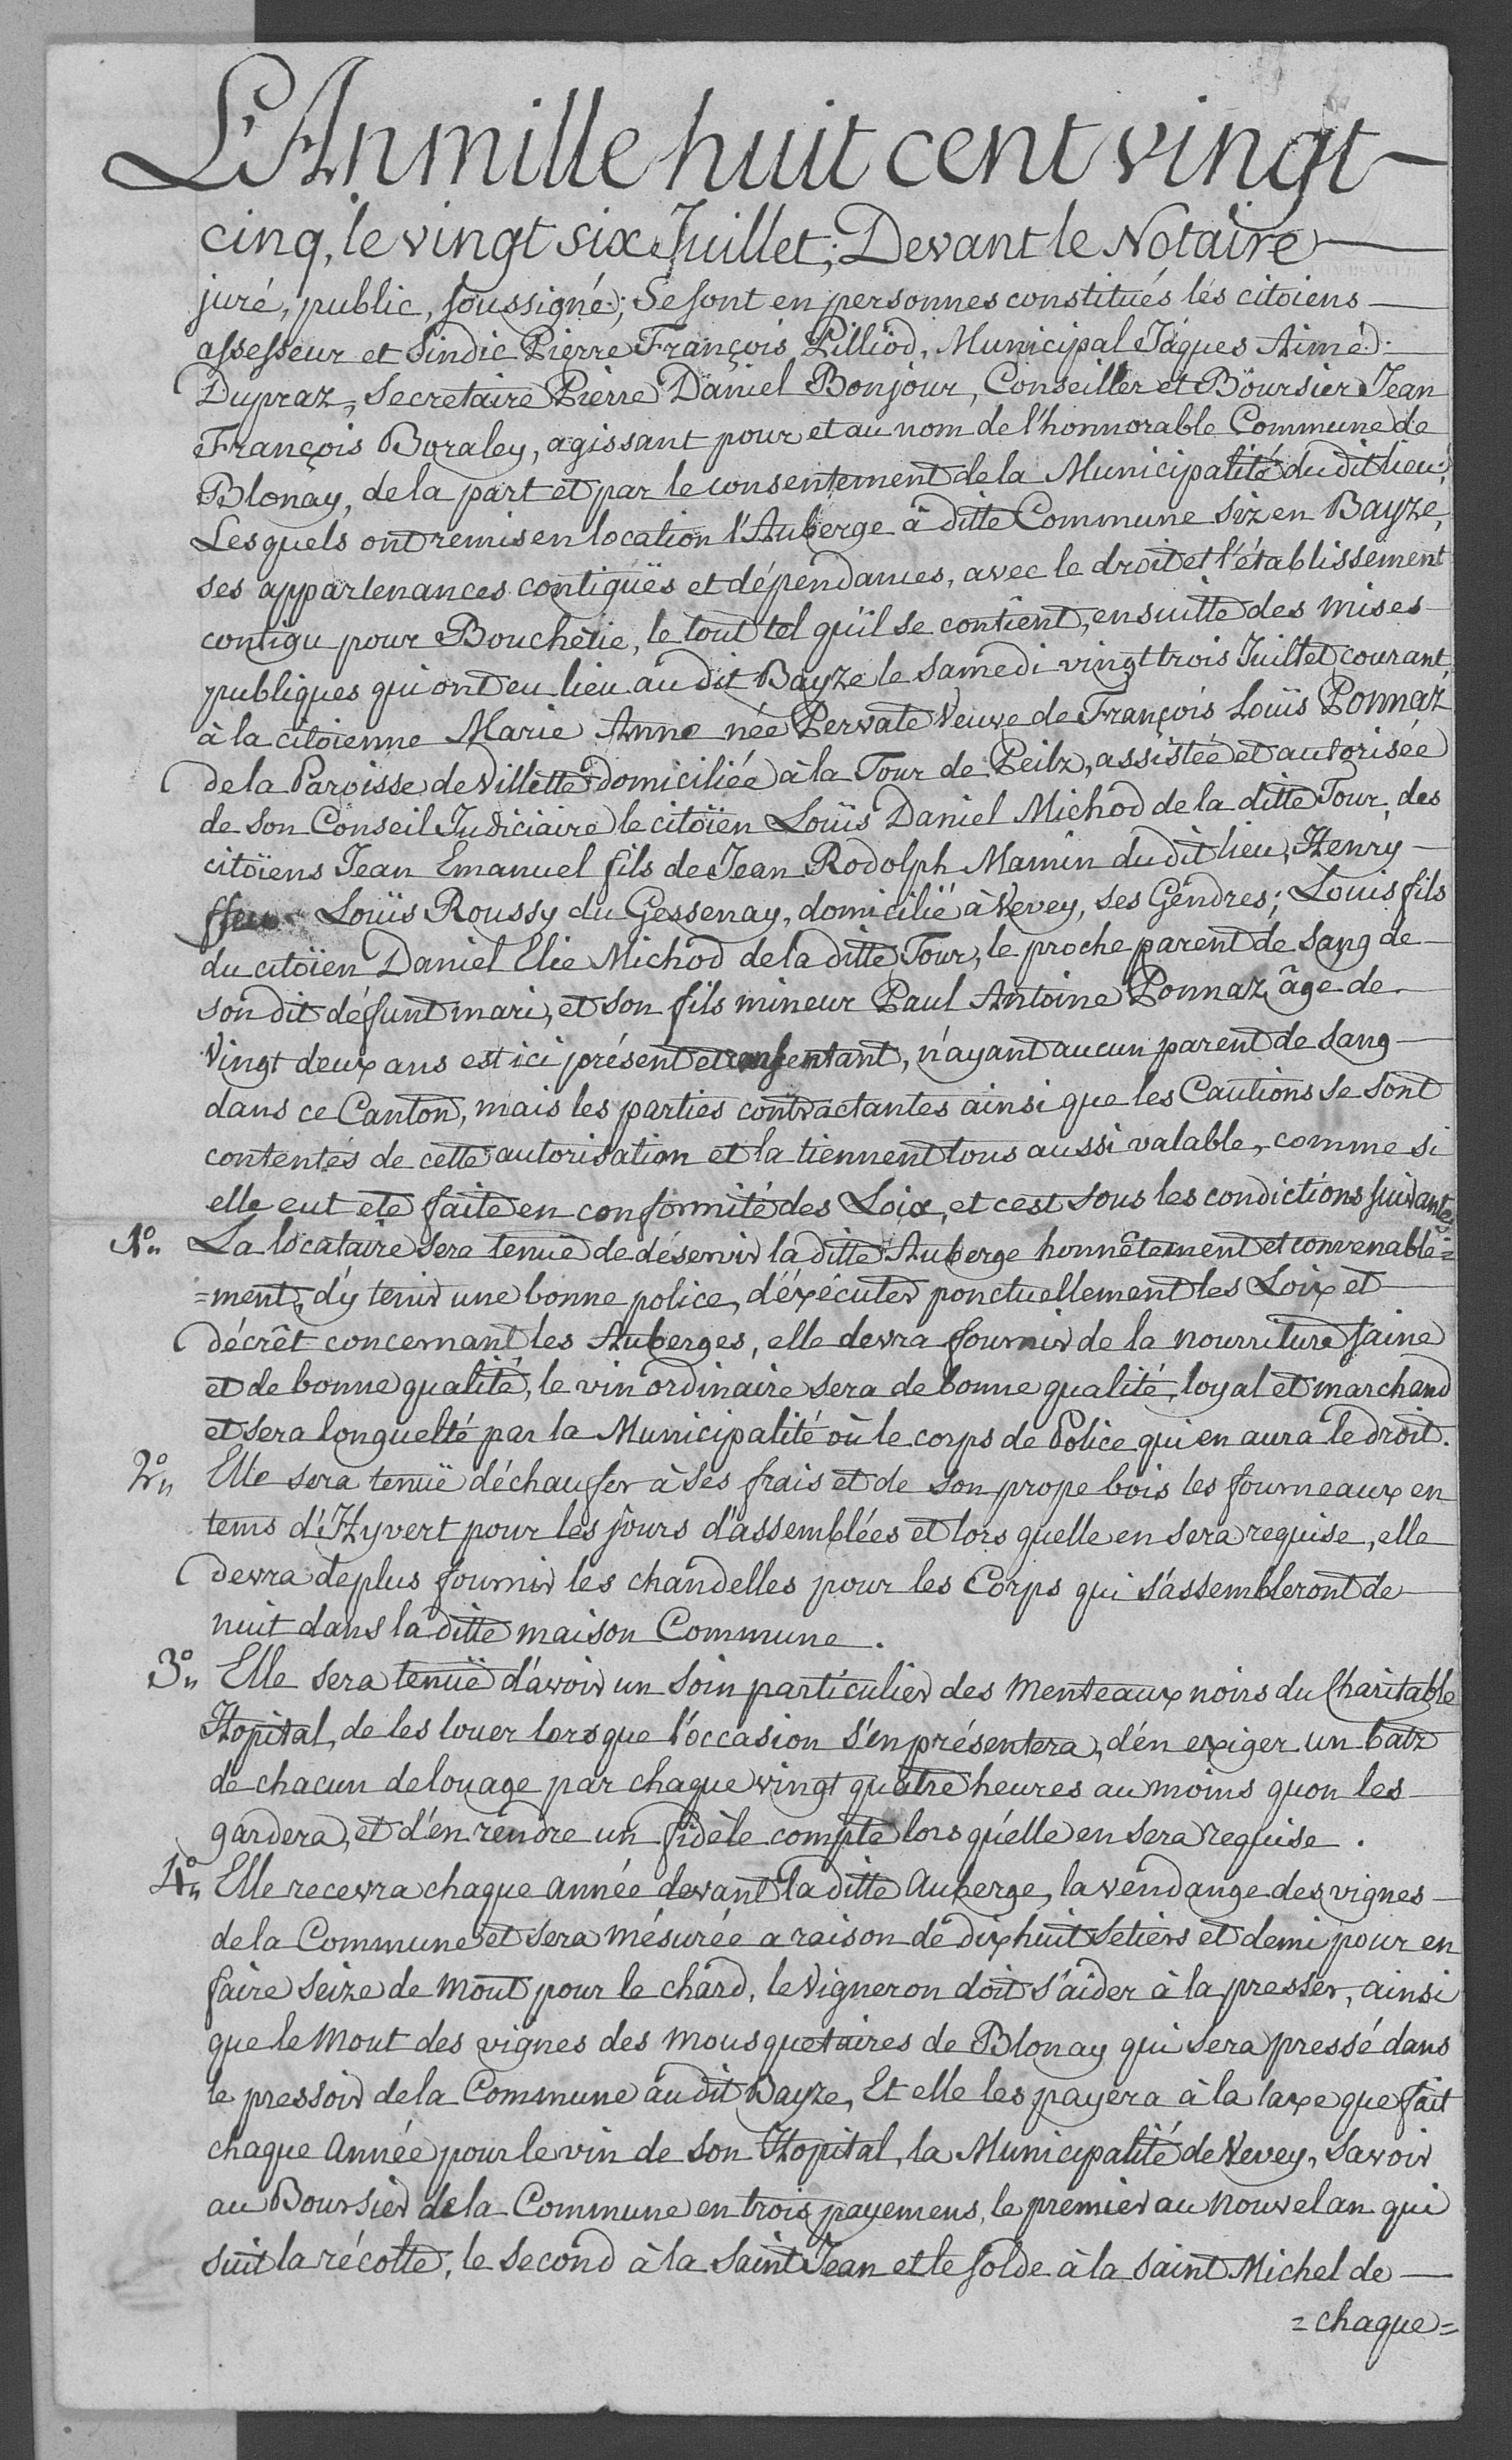 L'An mille huit cent vingt
cinq, le vingt six Juillet; Devant le Notaire
juré, public, soussigné; Se sont en personnes constitués les citoiens
assesseur et Sindic Pierre François Pilliod, Municipal Jâques Aimé
Dupraz, Secretaire Pierre Daniel Bonjour, Conseiller et Boursier Jean
François Boraley, agissant pour et au nom de l'honnorable Commune de
Blonay, de la part et par le consentement de la Municipalité du dit lieu;
Lesquels ont remis en location l'Auberge à ditte Commune siz en Bayze,
ses appartenances contiguës et dépendances, avec le droit et l'établissement
contigu pour Boucherie, le tout tel qu'il se contient, ensuitte des mises
publiques qui ont eu lieu au dit Bayze le samedi vingt trois Juillet courant
à la citoienne Marie Anne née Pervate Veuve de François Louïs Ponnaz
de la Paroisse de Villette domiciliée à la Tour de Peilz, assistée et autorisée
de son Conseil Judiciaire le citoïen Louïs Daniel Michod de la ditte Tour, des
citoïens Jean Emanuel fils de Jean Rodolph Mamin du dit lieu, Henry
Louïs Roussy du Gessenay, domicilié à Vevey, ses Gendres; Louis fils
du citoïen Daniel Elie Michod de la ditte Tour, le proche parent de sang de
son dit défunt mari, et son fils mineur Paul Antoine Ponnaz, âge de
Vingt deux ans est ici présent et consentant, n'ayant aucun parent de sang
dans ce Canton, mais les parties contractantes ainsi que les Cautions se sont
contentés de cette autorisation et la tiennent tous aussi valable, comme si
elle eut ete faite en conformité des Loix, et c'est sous les condictions suivantes
1°" La locataire sera tenuë de déservir la ditte Auberge honnêtement et convenable=
=ment, d'y tenir une bonne police, d'éxécuter ponctuellement les Loix et
décrêt concernant les Auberges, elle devra fournir de la nourriture saine
et de bonne qualité, le vin ordinaire sera de bonne qualité, loyal et marchand
et sera longuelté par la Municipalité où le corps de Police qui en aura le droit.
2°" Elle sera tenuë d'échauffer à ses frais et de son prope bois les fourneaux en
tems d'Hyvert pour les jours d'assemblées et lors quelle en sera requise, elle
devra deplus fournir les chandelles pour les Corps qui s'assembleront de
nuit dans la ditte maison Commune.
3°" Elle sera tenuë d'avoir un soin particulier des menteaux noirs du Charitable
Hopital, de les louer lorsque l'occasion s'en présentera, d'en exiger un batz
de chacun de louage par chaque vingt quatre heures au moins qu'on les
gardera, et d'en rendre un fidèle compte lors qu'elle en sera requise.
4°" Elle recevra chaque année devant la ditte Auberge, la vendange des vignes
de la Commune et sera mésurée a raison de dix huit setiers et demi pour en
faire seize de mout pour le chard, le Vigneron doit s'aider à la presser, ainsi
que le mout des vignes des mousquetaires de Blonay qui sera pressé dans
le pressoir de la Commune au dit Bayze, Et elle les payera à la taxe que fait
chaque Année pour le vin de son Hopital, la Municipalité de Vevey, Savoir
au Boursier de la Commune en trois payemens, le premier au nouvel an qui
suit la récolte, le second à la Saint Jean et le solde à la saint Michel de
=chaque=